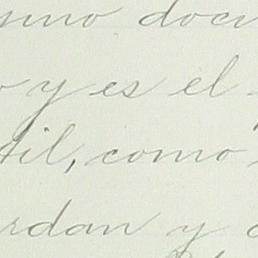 smo docu
o y es el
til, como
rdan y